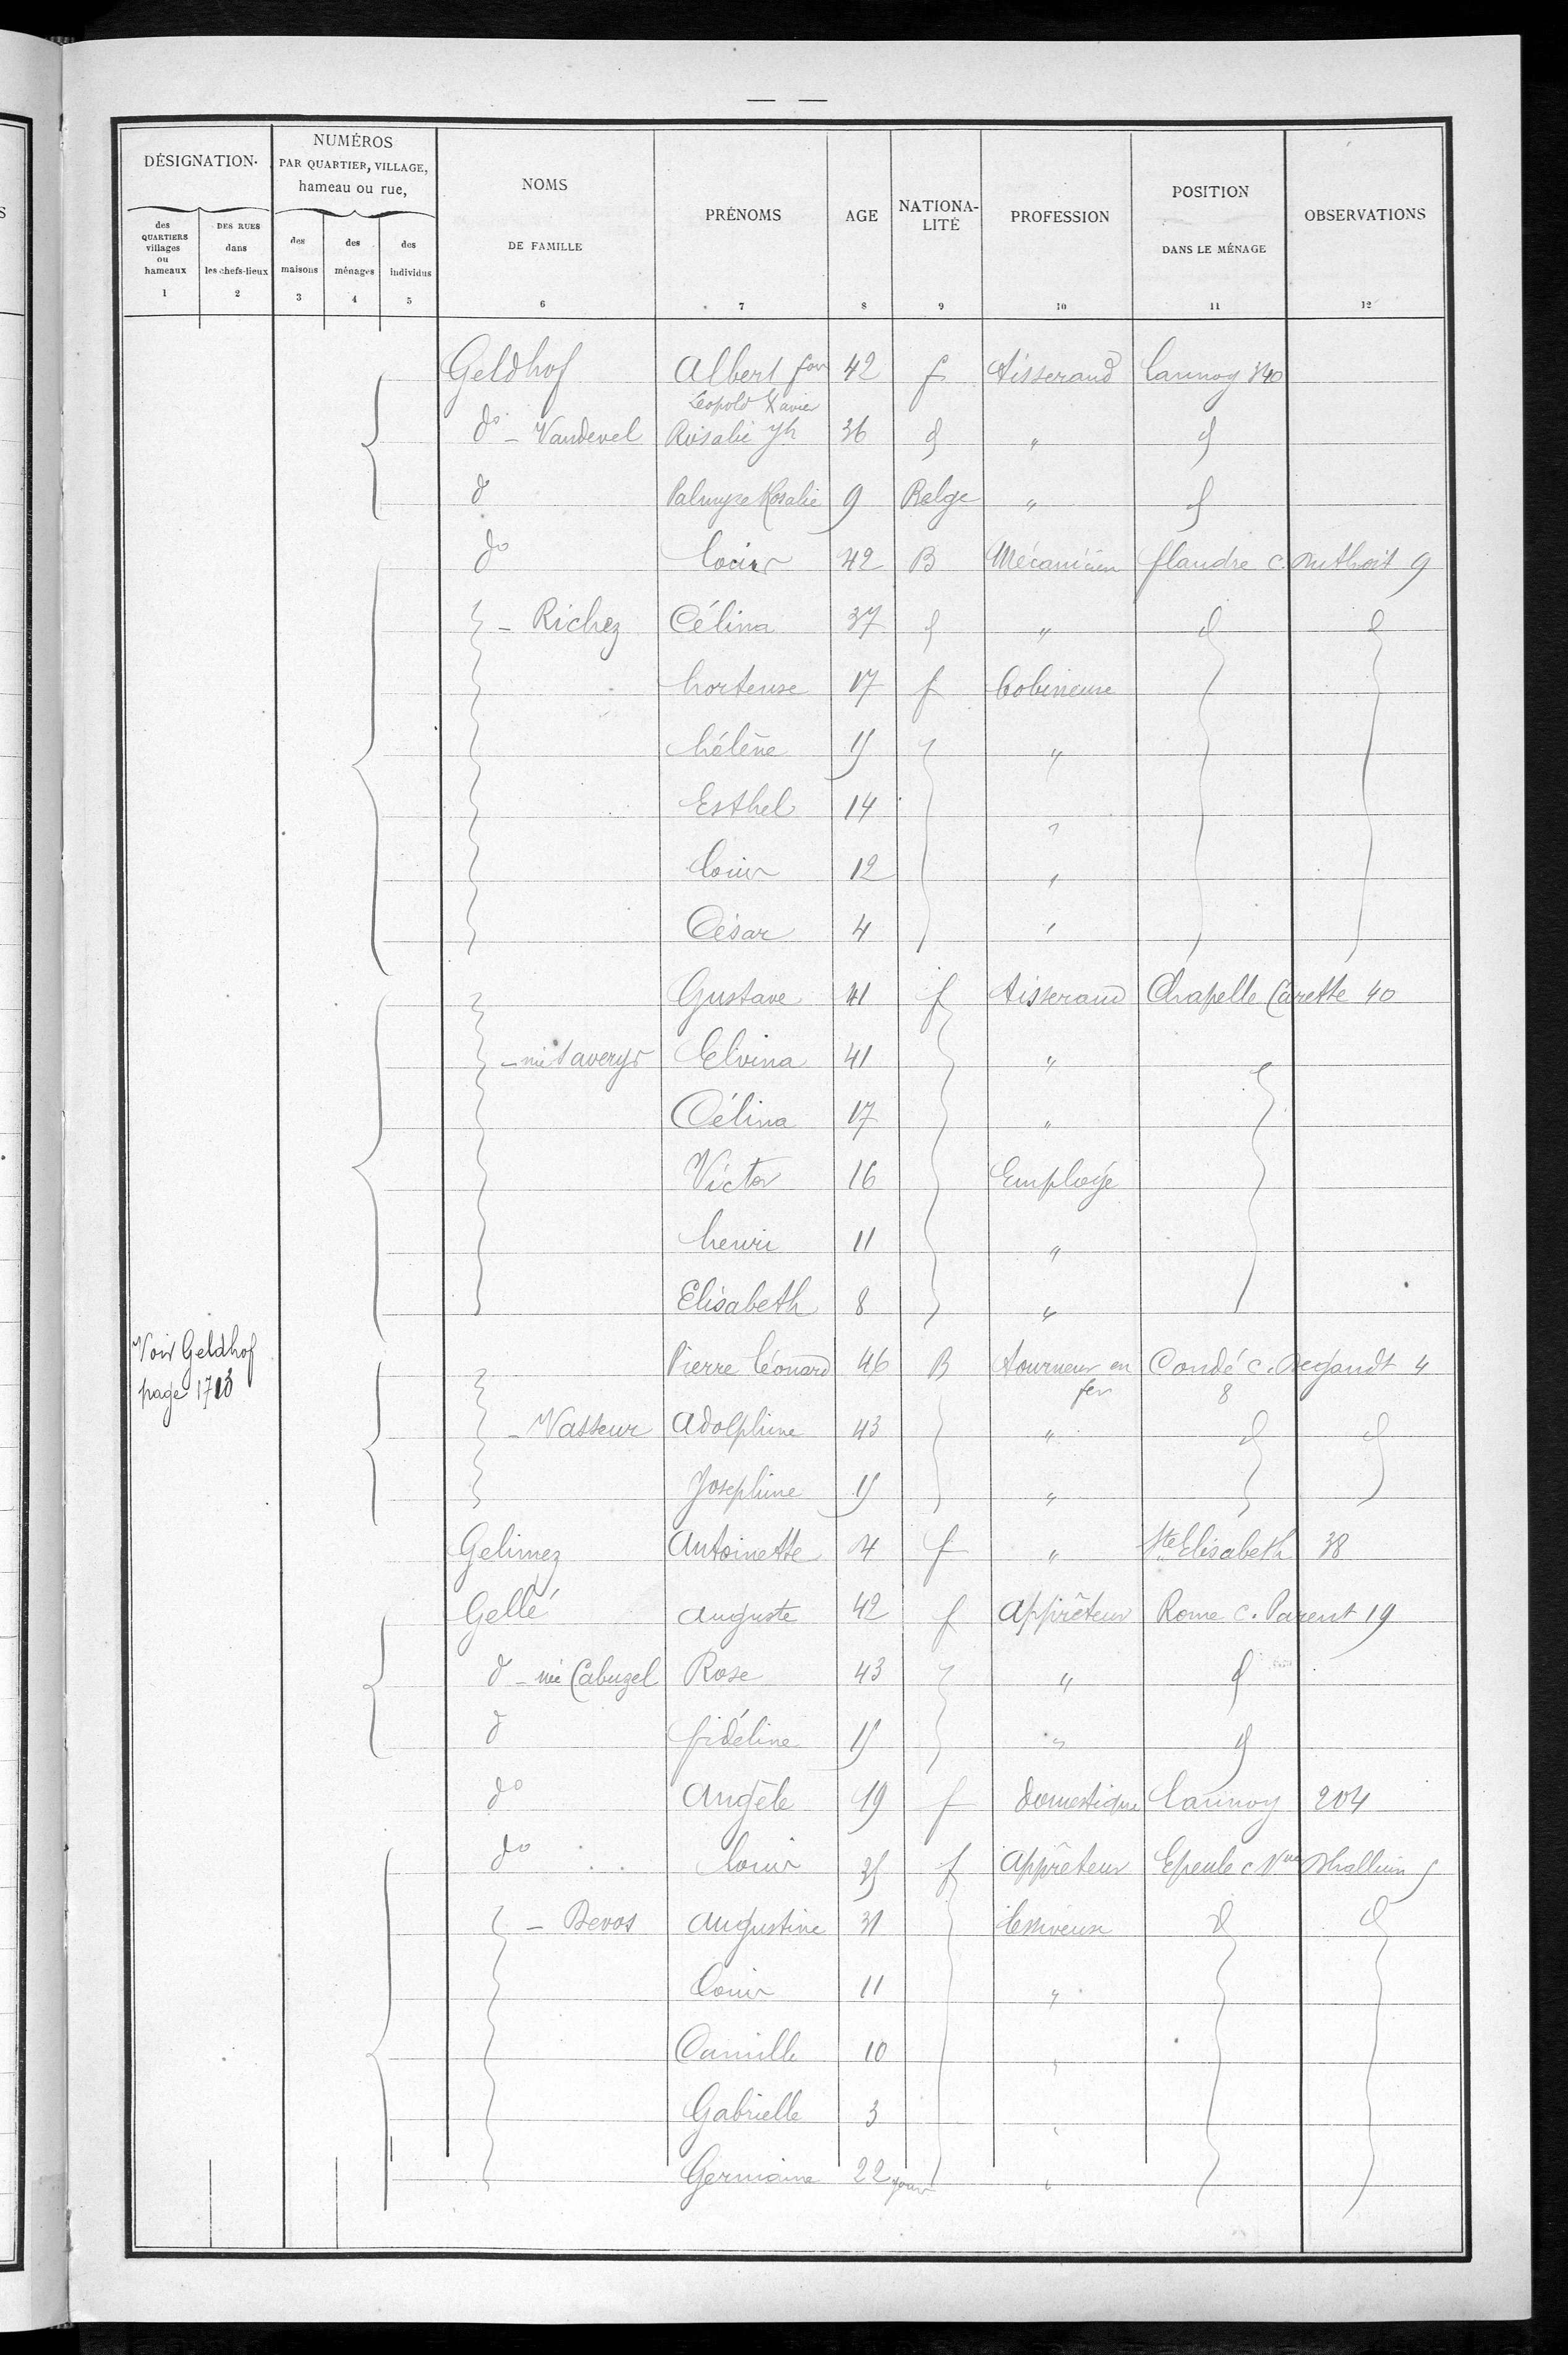 — —
DÉSIGNATION. NUMÉROS PAR QUARTIER, VILLAGE, hameau ou rue, NOMS DE FAMILLE PRÉNOMS AGE NATIONA-LITÉ PROFESSION POSITION DANS LE MÉNAGE OBSERVATIONS
des QUARTIERS villages ou hameaux DES RUES dans les chefs-lieux des maisons des ménages des individus
1 2 3 4 5 6 7 8 9 10 11 12
Geldhof Albert fois 42 f tisserand Lannoy 340
Leopold Xavier
do - Vandevel Rosalie Jh 36 d " d
d Palmyre Rosalie 9 Belge " d
do Louis 42 B Mécanicien flandre c. 9
- Richez Célina 37 d " d d
hortense 17 f bobineuse
hélène 15 "
Esthel 14 "
Louis 12 "
César 4 "
Gustave 41 f tisserand Chapelle Carette 40
- née taverys Elvina 41 "
Célina 17 "
Victor 16 Employé
henri 11 "
Elisabeth 8 "
Voir Geldhof
page 1713
Pierre Léonard 46 B tourneur en fer Condé c. Degandt 4
8
- Vasseur Adolphine 43 " d d
Josephine 15 "
Gelimez Antoinette 4 f " Ste Elisabeth 38
Gellé Auguste 42 f Apprêteur Rome c. Parent 19
d - née Cabuzel Rose 43 " d
d fidéline 15 " d
do Angèle 19 f domestique Lannoy 204
do Louis 35 f Apprêteur Epeule c Vve Dhalluin 5
- Devos Augustine 31 lessiveuse d d
Louis 11 "
Camille 10 "
Gabrielle 3 "
Germaine 22 jours "